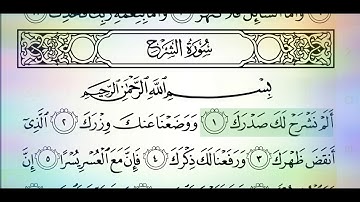 وَأَمَّا ٱلسَّآئِلَ فَلَا تَنْهَرْ ۝١٠ وَأَمَّا بِنِعْمَةِ رَبِّكَ فَحَدِّثْ
سُورَةُ الشَّرْحِ
بِسْمِ ٱللَّهِ ٱلرَّحْمَٰنِ ٱلرَّحِيمِ
أَلَمْ نَشْرَحْ لَكَ صَدْرَكَ ۝١ وَوَضَعْنَا عَنكَ وِزْرَكَ ۝٢ ٱلَّذِىٓ
أَنقَضَ ظَهْرَكَ ۝٣ وَرَفَعْنَا لَكَ ذِكْرَكَ ۝٤ فَإِنَّ مَعَ ٱلْعُسْرِ يُسْرًا ۝٥ إِنَّ